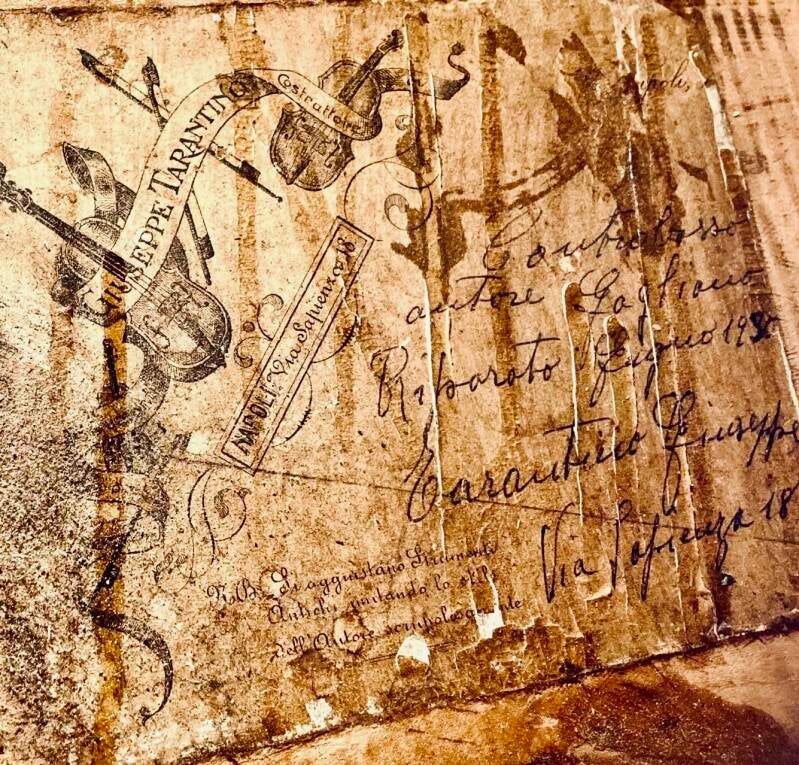 GIUSEPPE TARANTINO
Costruttore
NAPOLI Via Sapienza 18
Napoli,
Contrabasso
autore Gagliano
Riparato Giugno 1930
Tarantino Giuseppe
Via Sapienza 18
N.B. Si aggiustano Strumenti
Antichi imitando lo stile
dell'Autore scrupolosamente